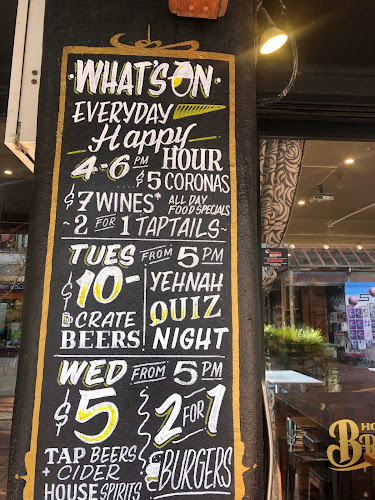 WHAT'S ON
EVERYDAY
Happy
4-6 PM HOUR
$5 CORONAS
$7 WINES* ALL DAY FOOD SPECIALS
~2 FOR 1 TAPTAILS~
TUES FROM 5 PM
$10-
CRATE
BEERS
YEHNAH
QUIZ
NIGHT
WED FROM 5 PM
$5
TAP BEERS
+ CIDER
HOUSE SPIRITS
2 FOR 1
BURGERS